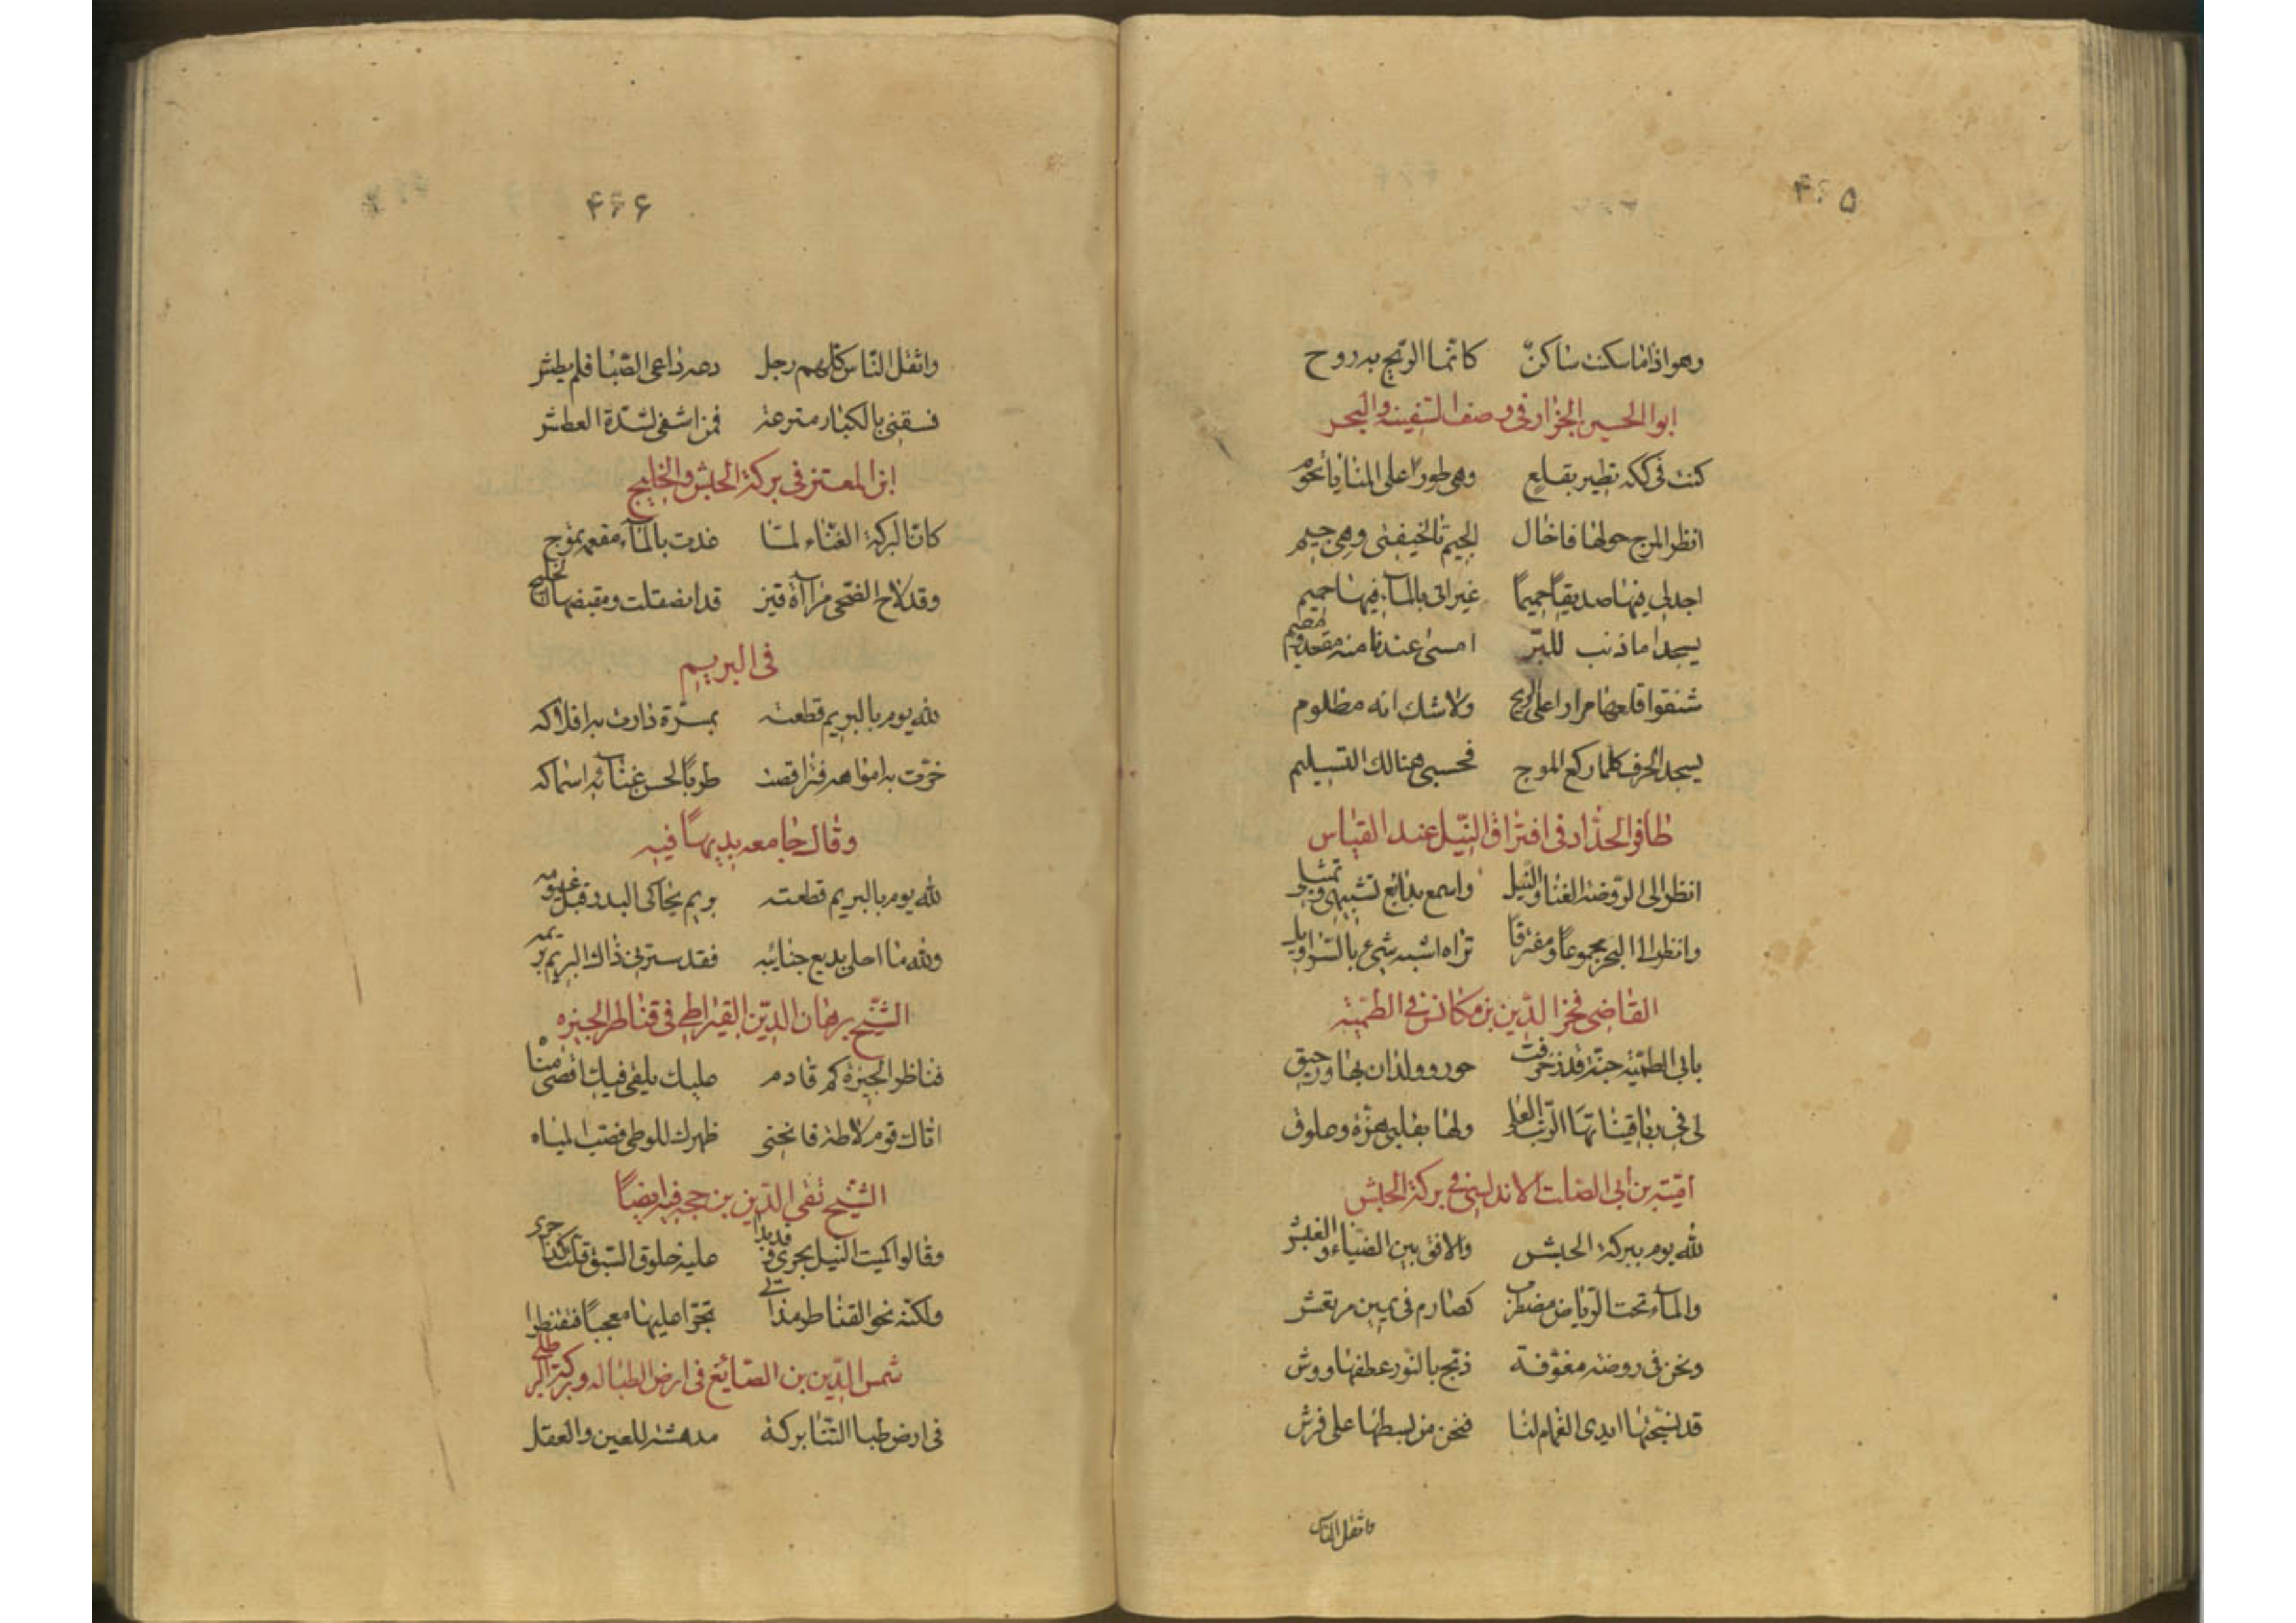 ۴۶۵
وهو اذا ما سكنت ساكنٌ كانما الريح به روح
ابو الحسين الجزار فى وصف السفينة والبحر
كنت فى ككه تطير بقلع وهى طورًا على المنايا تحوم
انظر المرج حولها فاخال الجيم تا لخيفنى وهى جيم
اجد لى فيها صديقًا حميمًا غير انى بالماء فيها حميم
امسى عندنا منه مقعد ومقيم
شنقوا قلعها مرارا على الريح ولا شك انه مظلوم
يسجد الجرف كلما ركع الموج فحسبى هنالك التسليم
ظافر الحدّاد فى افتراق النّيل عند القياس
انظر الى الروضة الغنا والنيل واسمع بدائع تشبيهى وتمثيلى
وانظر الى البحر مجموعًا ومفترقًا تراه اشبه شىء بالسراويل
القاضى فخر الدّين بن مكانس فى الطميّة
بابى الطميّة جنّة قد زخرفت حور وولدان بها ورحيق
لى فى قيناتها الرتب العلى ولها بقلبى هزّة وعلوق
اميّة بن ابى الصلت الاندلسى فى بركة الحبش
لله يوم ببركة الحبش والافق بين الضياء والغبش
والماء تحت الرياض مضطرب كصارم فى يمين مرتعش
ونحن فى روضة مفوّفة دبّج بالنور عطفها ووش
قد نسجتها ايدى الغمام لنا فنحن من بسطها على فرش
واثقل الناس
۴۶۶
واثقل النّاس كلّهم رجل دعه داعى الصّبا فلم يطش
فسقنى بالكبار مترعة فمن اشفى لشدّة العطش
ابن المعتز فى بركة الحبش والخليج
كانّ البركة الغنّاء لمّا غدت بالماء مفعمة تموج
وقد لاح الضحى مرآة قين قد انصقلت ومقبضها الخليج
فى البريم
لله يوم بالبريم قطعته بمسرّة دارت به افلاكه
طربًا لحسن غنائه اسماكه
وقال جامعه بديهًا فيه
لله يوم بالبريم قطعته بريم يحاكى البدر قبل غيومه
ولله ما احلى بديع جنابه فقد سترنى ذاك البريم بريمه
الشيخ برهان الدّين القيراطى فى قناطر الجيزه
قناطر الجيزة كم قادم عليك يلقى فيك اقصى مناه
اتاك قوم لاطة فانحنى ظهرك للوطى فصبّ المياه
الشيخ تقى الدّين بن حجه فيه ايضًا
وقالوا كميت النيل يجرى وقد بدا عليه خلوق السبق قلت كذا جرى
ولكنّه نحو القناطر مذ اتى تجرّا عليها معجبًا فتقنطرا
شمس الدّين بن الصّايغ فى ارض الطباله وبركة الرطلى
فى ارض طبالتنا بركة مدهشة للعين والعقل